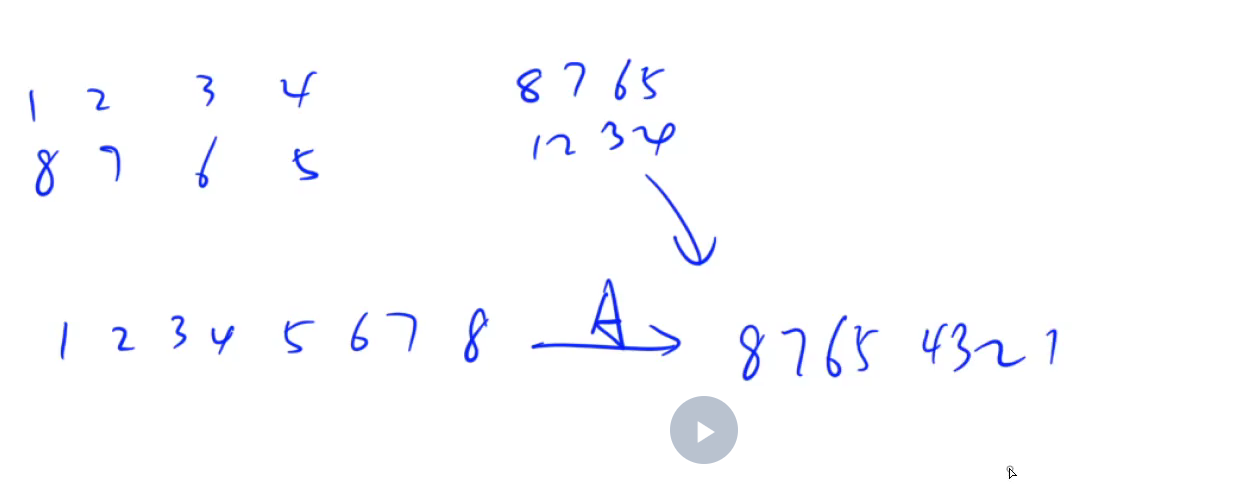 1 2 3 4
8 7 6 5
8 7 6 5
1 2 3 4
1 2 3 4 5 6 7 8 A 8 7 6 5 4 3 2 1